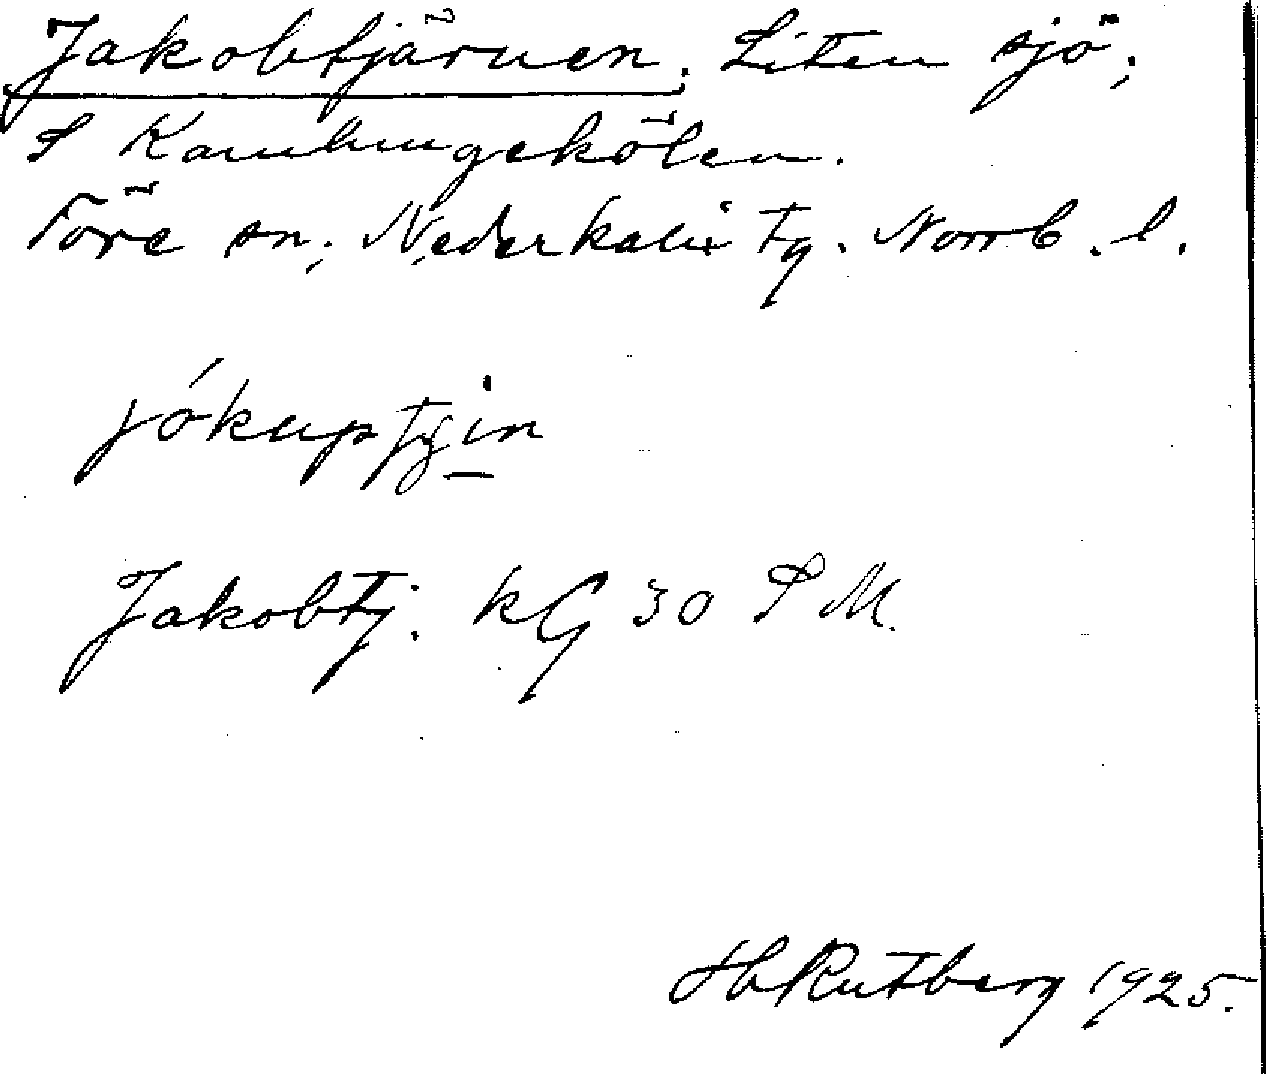 Jakobtjärnen. Liten sjö;
S Kamlungekölen.
Töre sn; Nederkalix tg. Norrb. l.
jókuptjin
Jakobtj. KG 30 S M.
H Rutberg 1925.